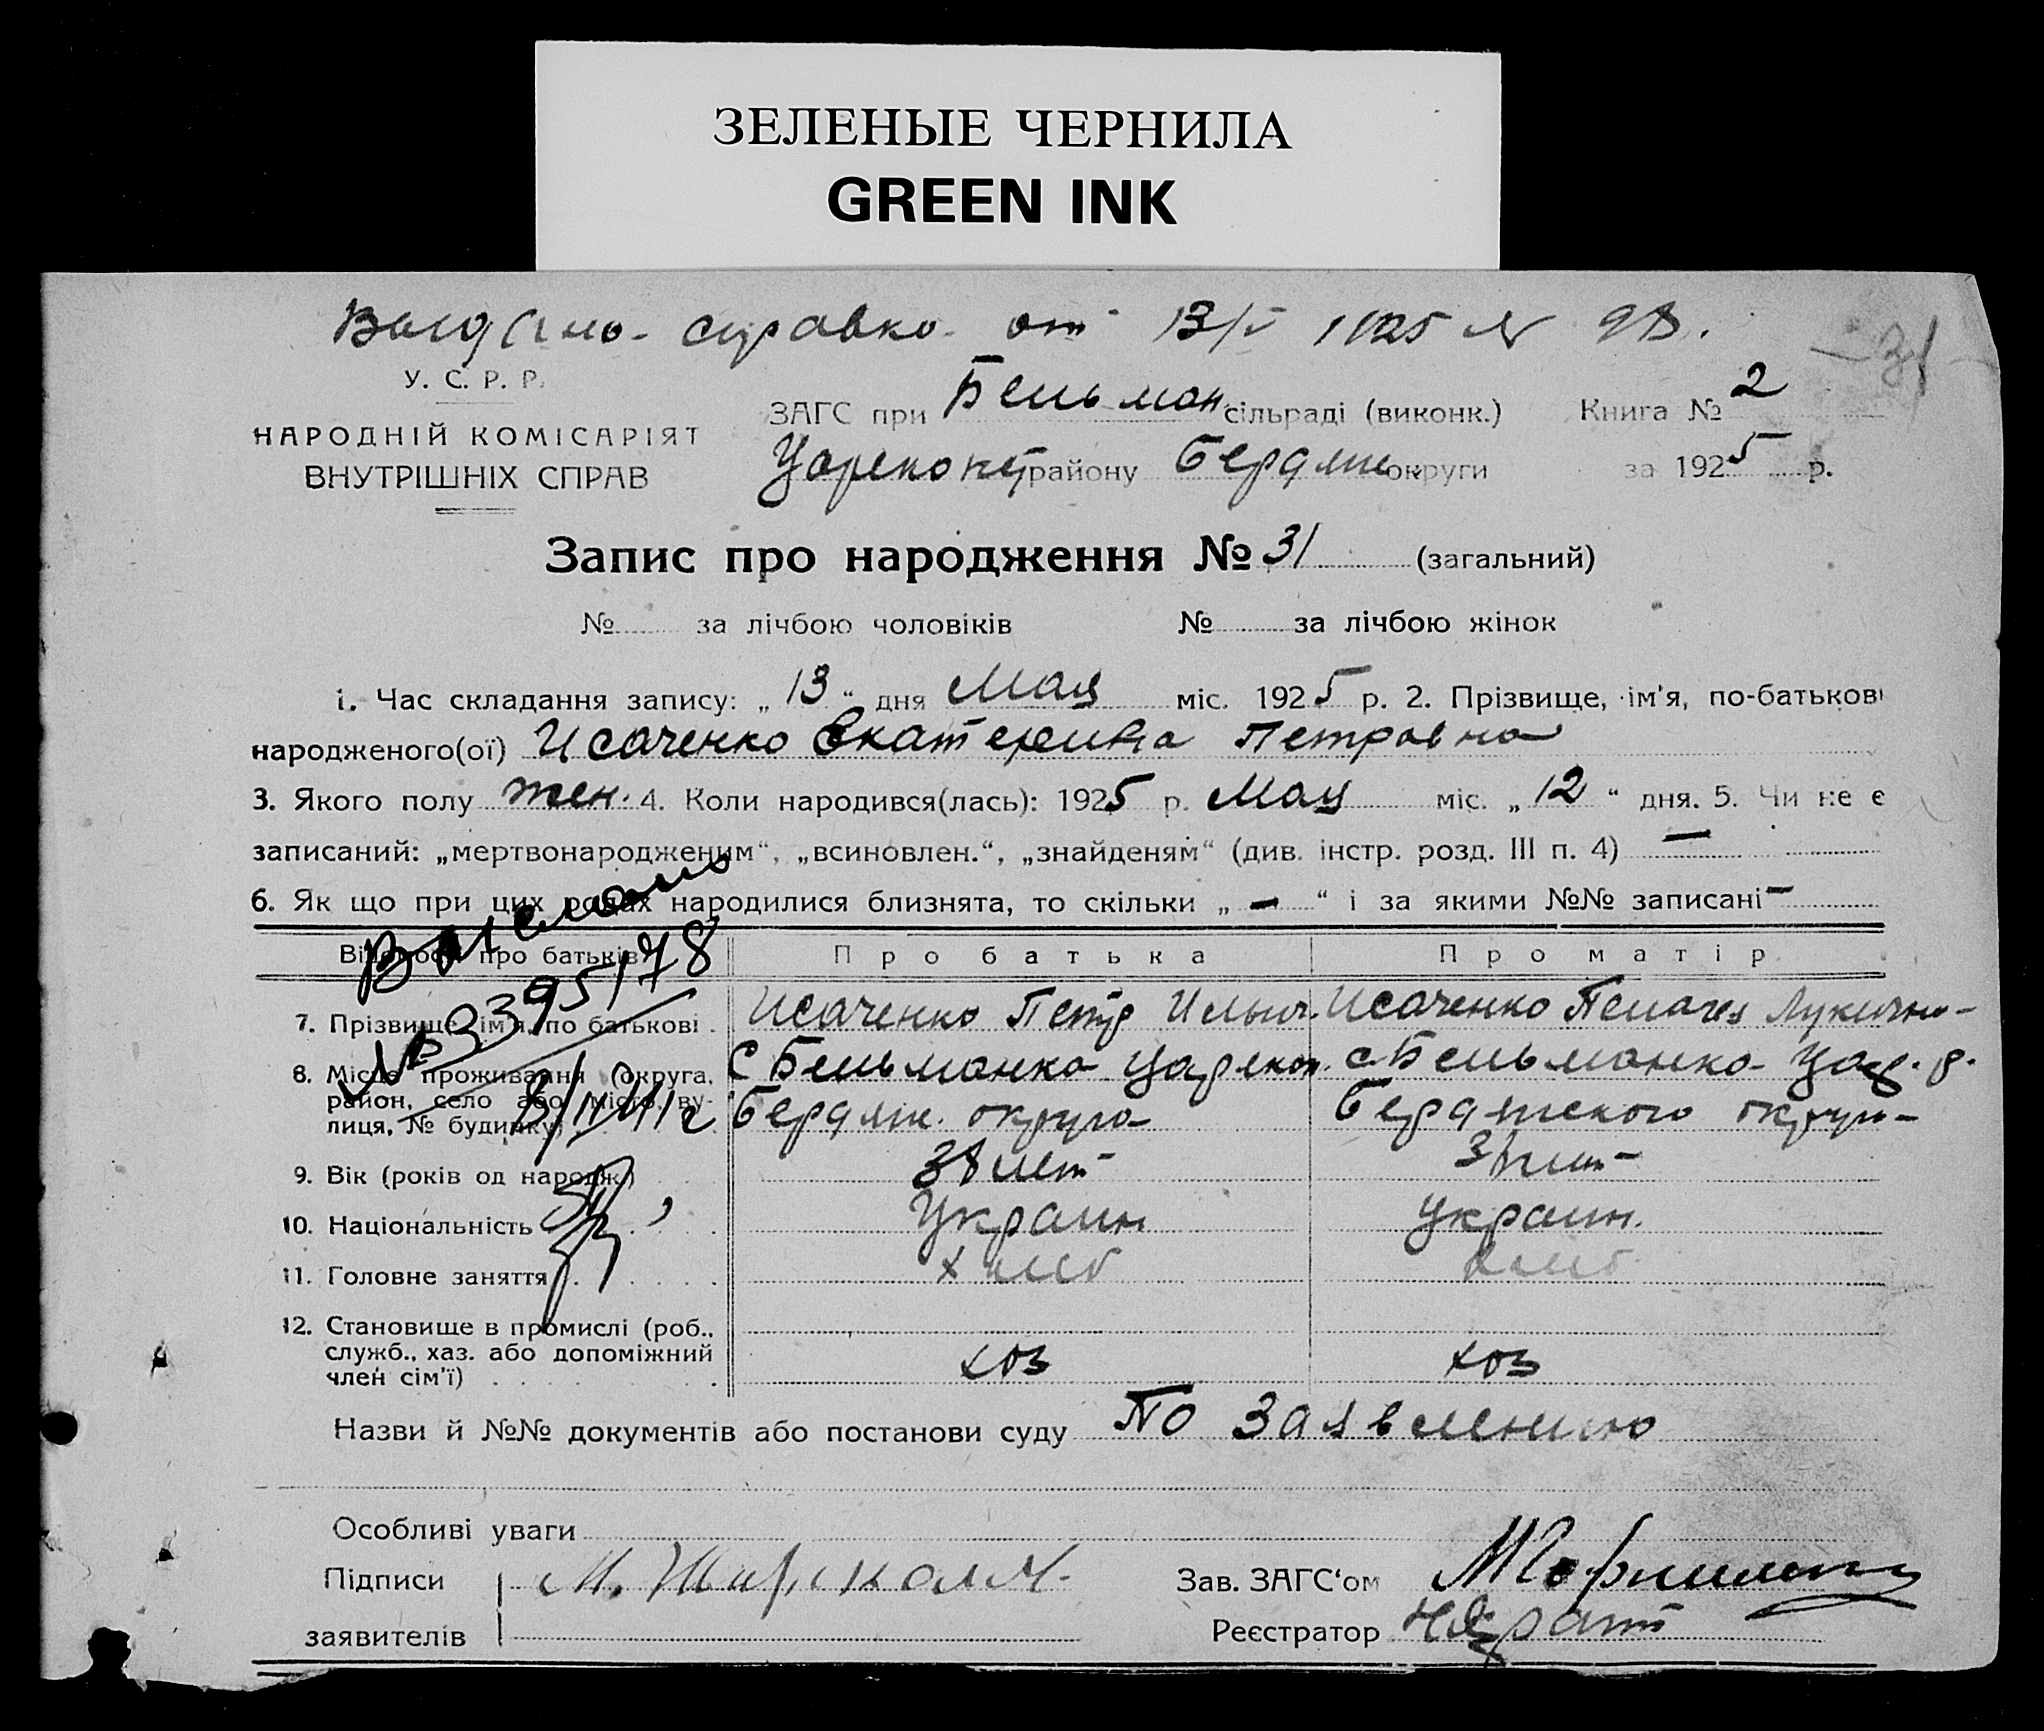 ЗЕЛЕНЫЕ ЧЕРНИЛА
GREEN INK
справка от 13/V 1925
У. С. Р. Р.
НАРОДНІЙ КОМІСАРІЯТ
ВНУТРІШНІХ СПРАВ
ЗАГС при Бельман. сільраді (виконк.) Книга № 2
району Бердян округи за 1925 р.
Запис про народження № 31 (загальний)
№ за лічбою чоловіків № за лічбою жінок
1. Час складання запису: „13“ дня Мая міс. 1925 р. 2. Прізвище, ім'я, по-батькові
народженого(ої) Исаченко Екатерина Петровна
3. Якого полу жен. 4. Коли народився(лась): 1925 р. Мая міс. „12“ дня. 5. Чи не є
записаний: „мертвонародженим“, „всиновлен.“, „знайденям“ (див. інстр. розд. III п. 4) —
6. Як що при цих родах народилися близнята, то скільки „—“ і за якими №№ записані —
Відомости про батьків Про батька Про матір
№ 3395178
7. Прізвище, ім'я, по батькові Исаченко Петр Ильич. Исаченко Лукична
8. Місце проживання (округа, район, село або місто, вулиця, № будинку) С Бельманка Царекон. с Бельманка Цар. р.
Бердян. округа Бердянского округа
9. Вік (років од народж.) 38 лет
10. Національність Украин Украин.
11. Головне заняття хлеб хлеб.
12. Становище в промислі (роб.,
служб., хаз. або допоміжний
член сім'ї) хоз хоз
Назви й №№ документів або постанови суду По заявлению
Особливі уваги
Підписи
заявителів
Зав. ЗАГС'ом
Реєстратор